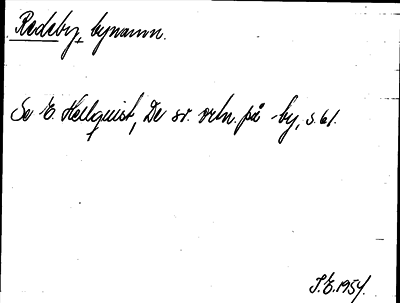 Redeby, bynamn.
Se E. Hellquist, De sv. ortn. på -by, s. 61.
J.E. 1954.